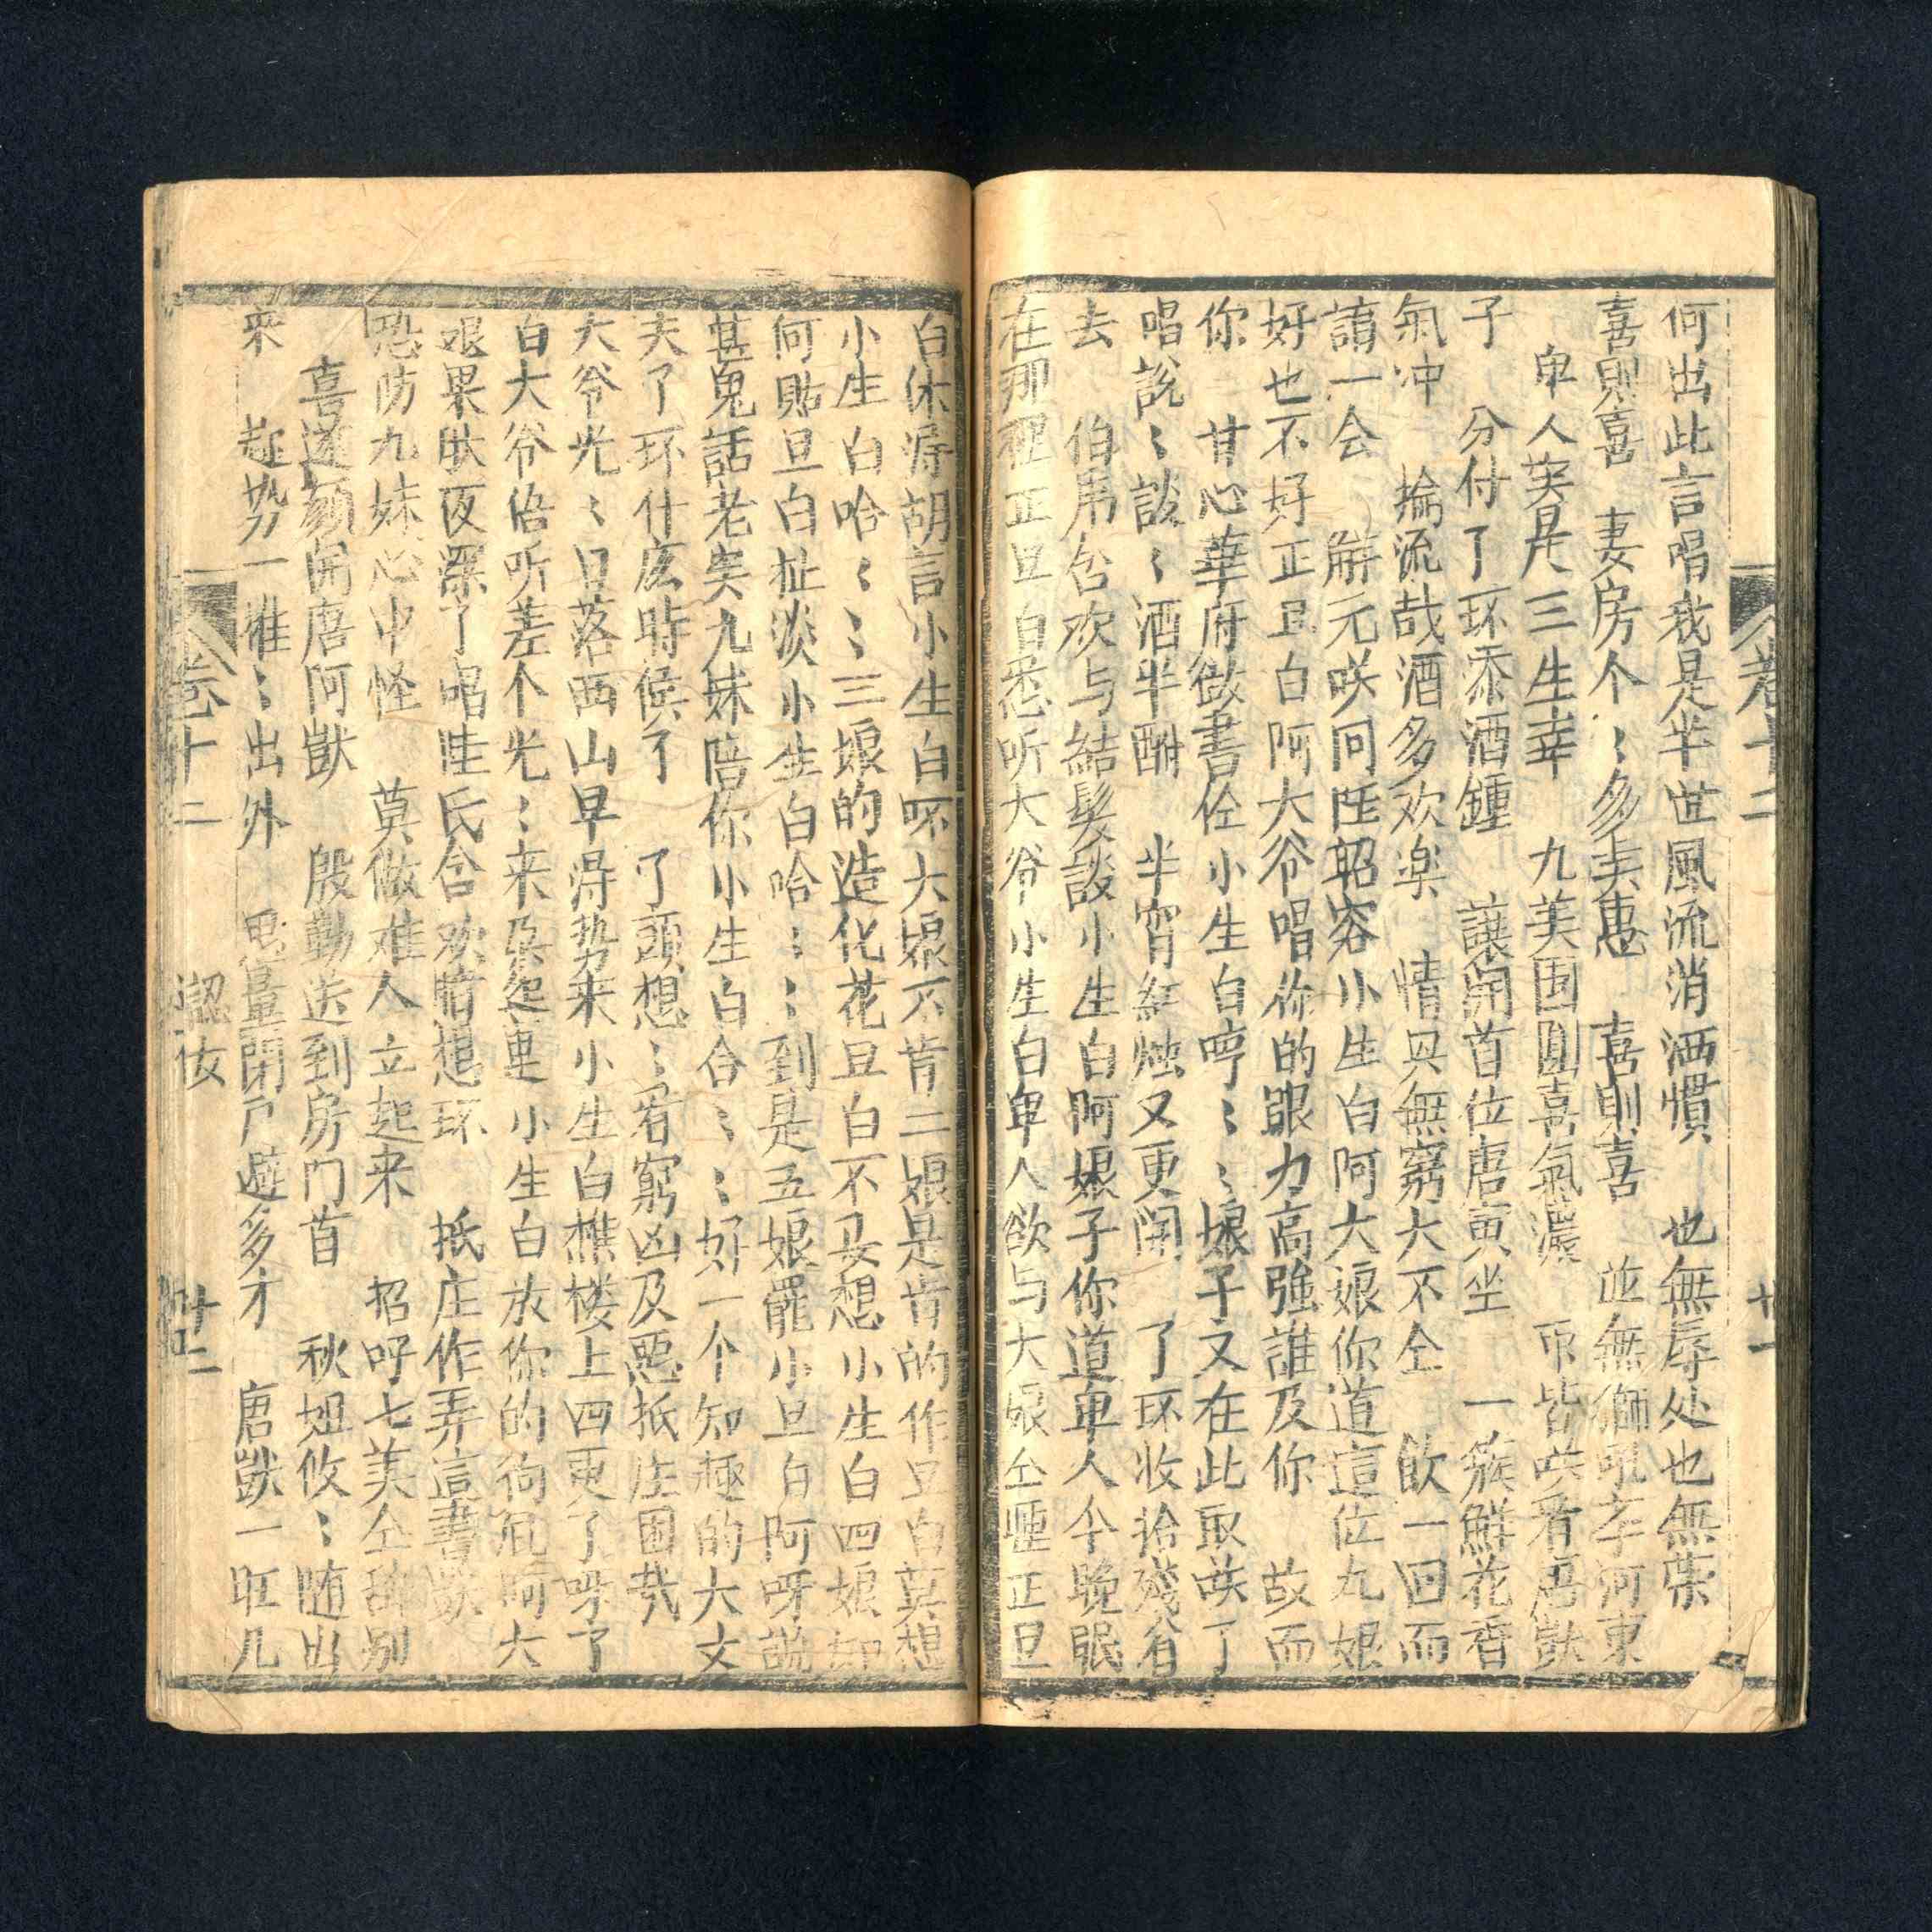 何出此言唱我是半世風流消洒慣　也無辱处也無榮
喜則喜　妻房个〻多美惠　喜則喜　並無獅吼在河東
卑人実是三生幸　九美団圓喜氣濃　帀皆咲看唐獃
子　分付了环添酒鍾　讓開首位唐寅坐　一簇鮮花香
氣冲　掄流哉酒多欢楽　情具無窮大不仝　飲一回而
請一会　解元咲问陸昭容小生白阿大娘你道這位九娘
好也不好正旦白阿大爷唱你的眼力高強誰及你　故而
你　甘心華府做書佺小生白哼〻〻娘子又在此取咲了
唱說〻談〻酒半酣　半宵紅燭又更闌　了环收拾殘肴
去　伯虎含欢与結髮談小生白阿娘子你道卑人今晚眠
在那裡正旦白悉听大爷小生白卑人欲与大娘仝睡正旦
白休得胡言小生白呸大娘不肯二娘是肯的作旦白莫想
小生白哈〻〻三娘的造化花旦白不要想小生白四娘如
何貼旦白扯淡小生白哈〻〻到是五娘罷小旦白阿呀說
甚鬼話老矣九妹陪你小生白合〻〻好一个知趣的大丈
夫了环什庅時候了　了頭想〻看窮凶及惡抵庄困哉
大爷光〻日落西山早得势来小生白樵楼上四更了呀了
白大爷倍听差个光〻来朶起更小生白放你的狗屁阿大
娘果肽夜深了唱陸氏含欢暗想环　抵庄作弄這書獃
恐防九妹心中怪　莫做难人立起来　招呼七美仝辞别
喜逐顏開唐阿獃　殷勤送到房门首　秋姐攸〻随出
来　趂势一推〻出外　思量閉戶避多才　唐獃一旺几
卷十二
廿一
卷十二
認女
廿二